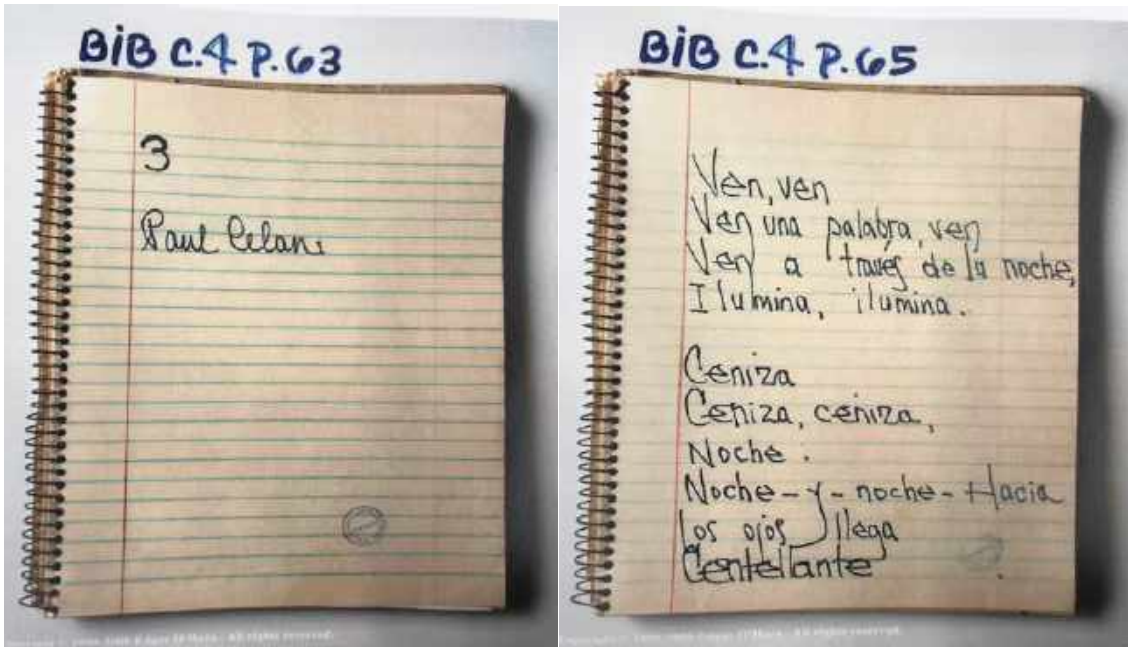 BiB C.4 P.63
3
Paul Celan
BiB C.4 P.65
Ven, ven
Ven una palabra, ven
Ven a través de la noche,
Ilumina, ilumina.
Ceniza
Ceniza, ceniza,
Noche.
Noche-y-noche-Hacia
los ojos llega
Centellante
All rights reserved.
All rights reserved.